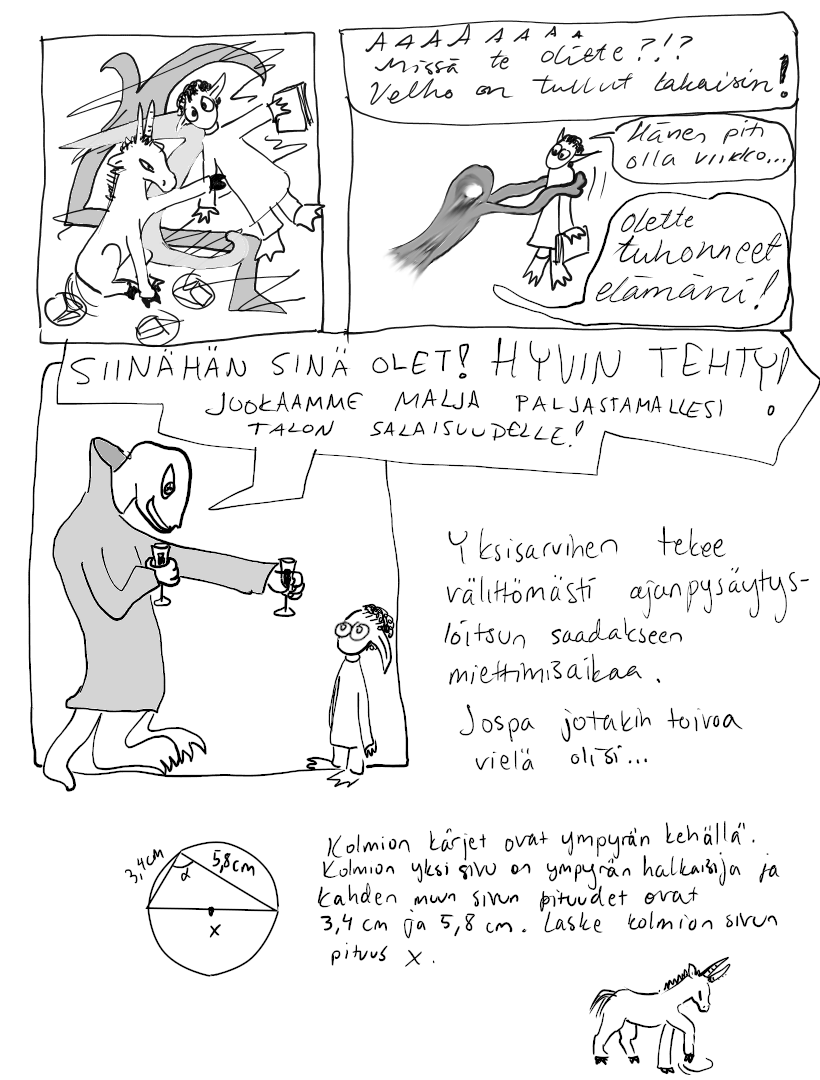 AAAAAAAA
Missä te olitte?!?
Velho on tullut takaisin!
Hänen piti
olla viikko...
olette
tuhonneet
elämäni!
SIINÄHÄN SINÄ OLET! HYVIN TEHTY!
JUOKAAMME MALJA PALJASTAMALLESI
TALON SALAISUUDELLE!
Yksisarvinen tekee
välittömästi ajanpysäytys-
loitsun saadakseen
miettimisaikaa.
Jospa jotakin toivoa
vielä olisi...
3,4 cm
5,8 cm
α
x
Kolmion kärjet ovat ympyrän kehällä.
Kolmion yksi sivu on ympyrän halkaisija ja
kahden muun sivun pituudet ovat
3,4 cm ja 5,8 cm. Laske kolmion sivun
pituus x.